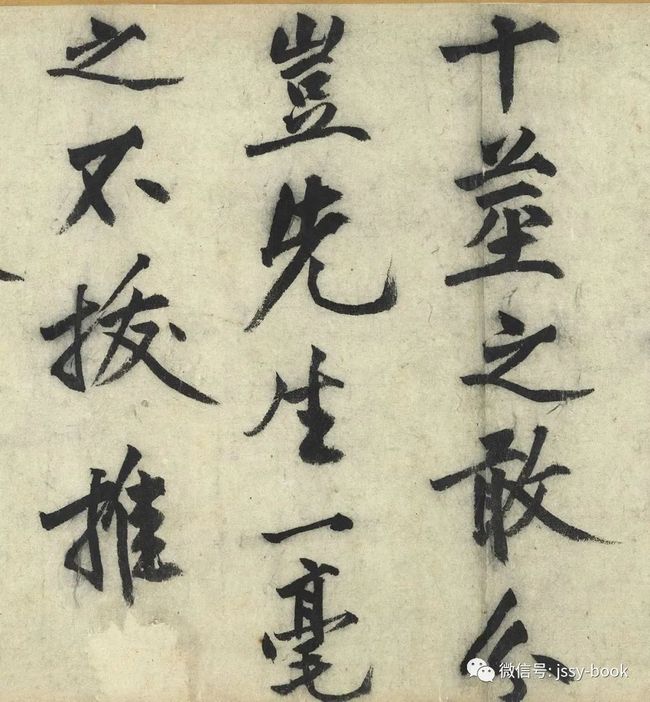 十莖之敢分
豈先生一毫
之不拔推
微信号: jssy-book